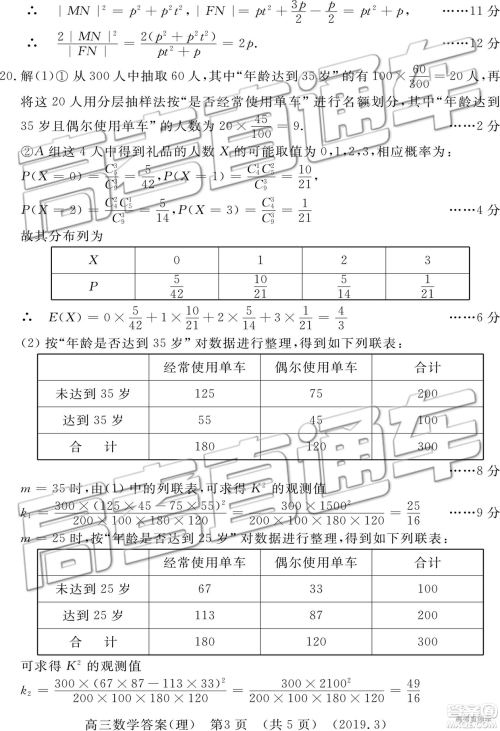 ∴ |MN|² = p² + p²t², |FN| = pt² + 3p/2 − p/2 = pt² + p, ……11 分
∴ 2|MN|²/|FN| = 2(p² + p²t²)/(pt² + p) = 2p. ……12 分
20. 解(1)① 从 300 人中抽取 60 人,其中“年龄达到 35 岁”的有 100 × 60/300 = 20 人,再
将这 20 人用分层抽样法按“是否经常使用单车”进行名额划分,其中“年龄达到
35 岁且偶尔使用单车”的人数为 20 × 45/100 = 9. ……2 分
②A 组这 4 人中得到礼品的人数 X 的可能取值为 0,1,2,3,相应概率为:
P(X = 0) = C₅³/C₉³ = 5/42, P(X = 1) = C₄¹C₅²/C₉³ = 10/21,
P(X = 2) = C₄²C₅¹/C₉³ = 5/14, P(X = 3) = C₄³/C₉³ = 1/21 ……4 分
故其分布列为
X 0 1 2 3
P 5/42 10/21 5/14 1/21
∴ E(X) = 0 × 5/42 + 1 × 10/21 + 2 × 5/14 + 3 × 1/21 = 4/3 ……6 分
(2) 按“年龄是否达到 35 岁”对数据进行整理,得到如下列联表:
经常使用单车 偶尔使用单车 合计
未达到 35 岁 125 75 200
达到 35 岁 55 45 100
合 计 180 120 300
……8 分
m = 35 时,由(1) 中的列联表,可求得 K² 的观测值
k₁ = 300 × (125 × 45 − 75 × 55)²/(200 × 100 × 180 × 120) = 300 × 1500²/(200 × 100 × 180 × 120) = 25/16 ……9 分
m = 25 时,按“年龄是否达到 25 岁”对数据进行整理,得到如下列联表:
经常使用单车 偶尔使用单车 合计
未达到 25 岁 67 33 100
达到 25 岁 113 87 200
合 计 180 120 300
可求得 K² 的观测值
k₂ = 300 × (67 × 87 − 113 × 33)²/(200 × 100 × 180 × 120) = 300 × 2100²/(200 × 100 × 180 × 120) = 49/16
高三数学答案(理) 第3页 (共5页) (2019.3)
高考直通车